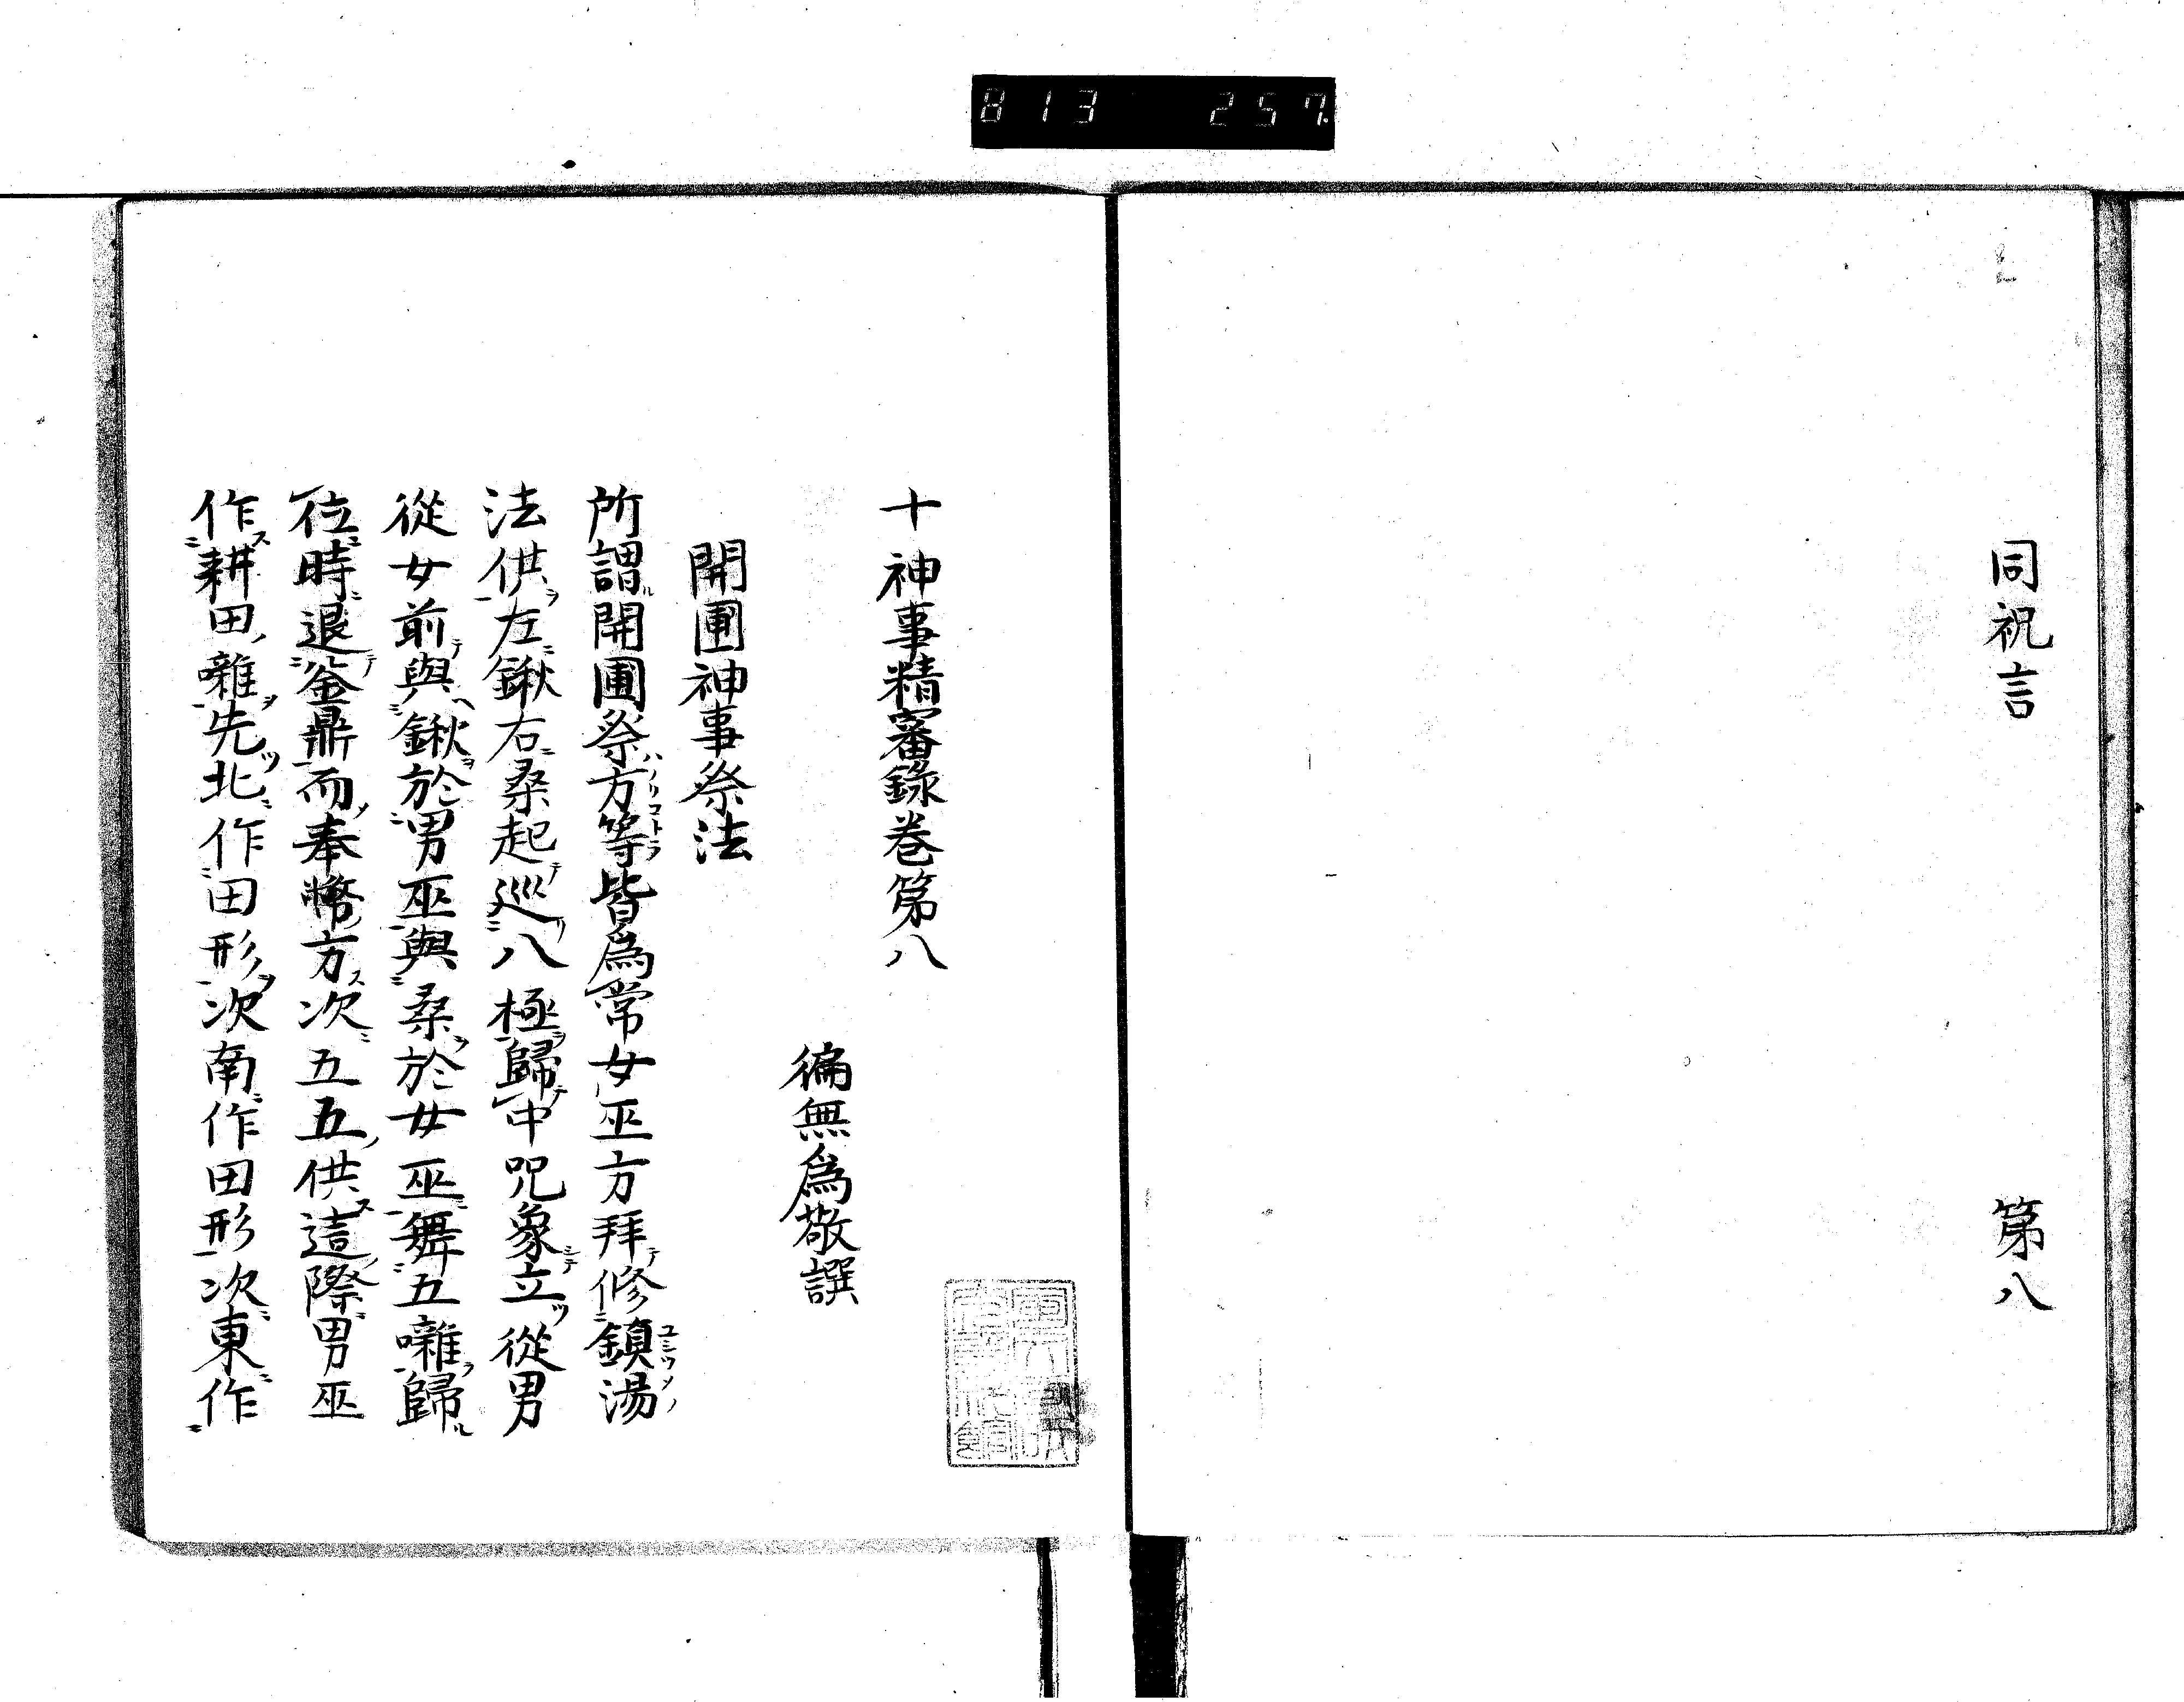 813 257
同祝言 第八
十神事精審錄巻第八
徧無爲敬譔
開圃神事祭法
所謂開圃祭方等皆爲常女巫方拜修鎮湯
法供左鍬右桑起巡八極歸中呪象立從男
從女前與鍬於男巫與桑於女巫舞五囃歸
位時退釜鼎而奉幣方次五五供這際男巫
作耕田囃先北作田形次南作田形次東作